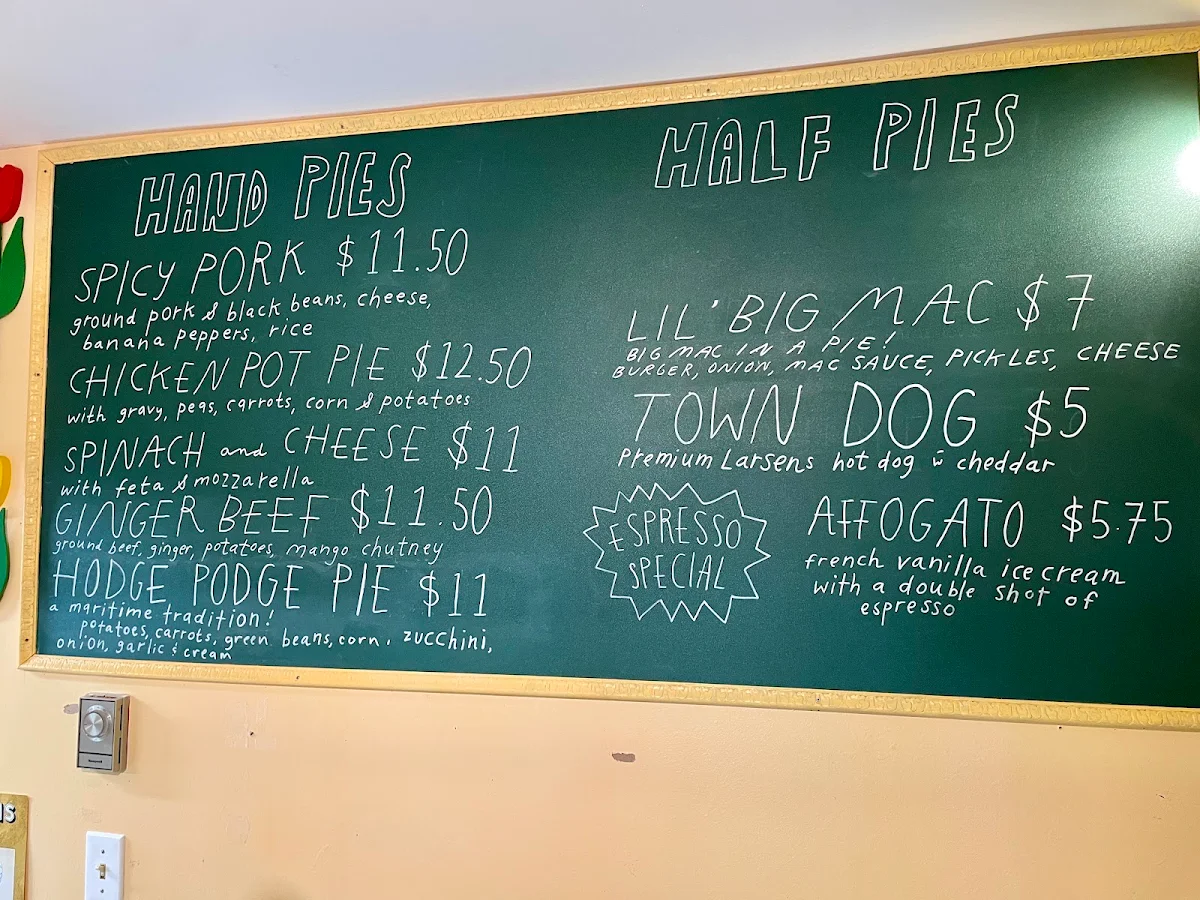 HAND PIES
SPICY PORK $11.50
ground pork & black beans, cheese,
banana peppers, rice
CHICKEN POT PIE $12.50
with gravy, peas, carrots, corn & potatoes
SPINACH and CHEESE $11
with feta & mozzarella
GINGER BEEF $11.50
ground beef, ginger, potatoes, mango chutney
HODGE PODGE PIE $11
a maritime tradition!
potatoes, carrots, green beans, corn, zucchini,
onion, garlic & cream
HALF PIES
LIL' BIG MAC $7
BIG MAC IN A PIE!
BURGER, ONION, MAC SAUCE, PICKLES, CHEESE
TOWN DOG $5
Premium Larsens hot dog w cheddar
ESPRESSO
SPECIAL
AFFOGATO $5.75
french vanilla ice cream
with a double shot of
espresso